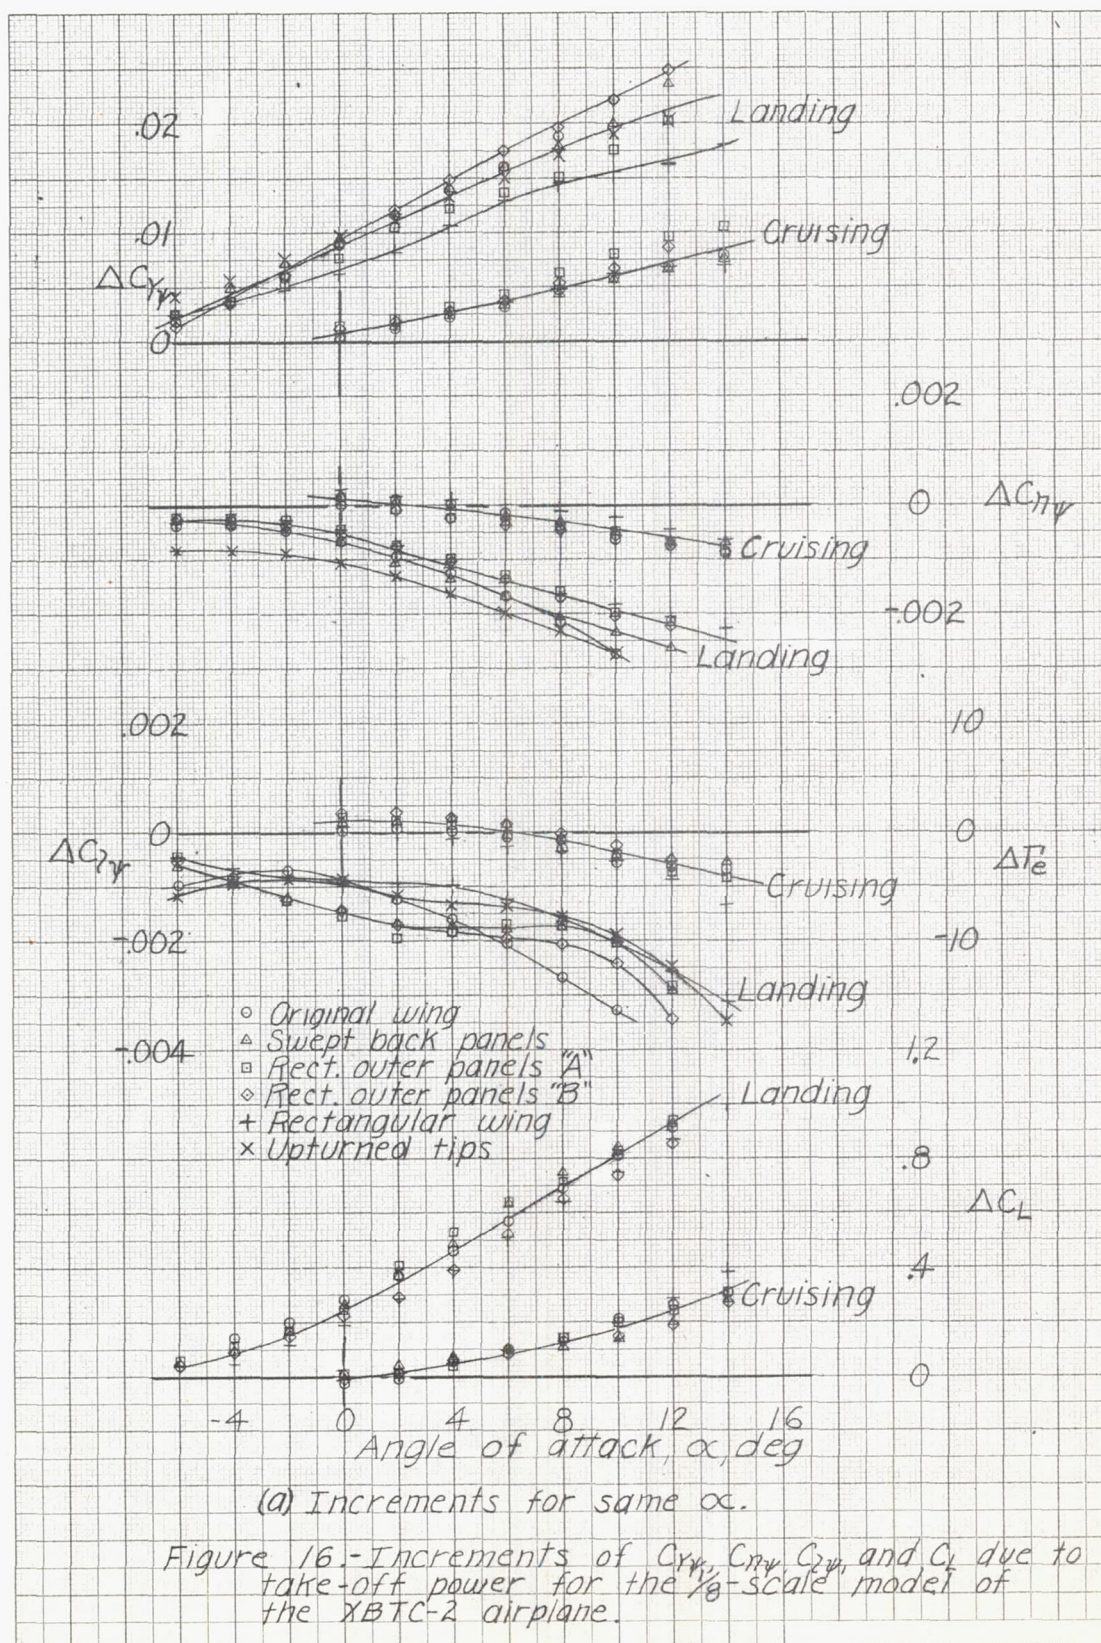 .02
Landing
.01
Cruising
ΔC_Yψ
0
.002
0
ΔC_nψ
Cruising
-.002
Landing
.002
10
0
0
ΔC_lψ
ΔΓe
Cruising
-.002
-10
Landing
○ Original wing
△ Swept back panels
-.004
1.2
□ Rect. outer panels "A"
◇ Rect. outer panels "B"
Landing
+ Rectangular wing
× Upturned tips
.8
ΔC_L
.4
Cruising
0
-4 0 4 8 12 16
Angle of attack, α, deg
(a) Increments for same α.
Figure 16.-Increments of C_Yψ, C_nψ, C_lψ, and C_L due to
take-off power for the 1/8-scale model of
the XBTC-2 airplane.